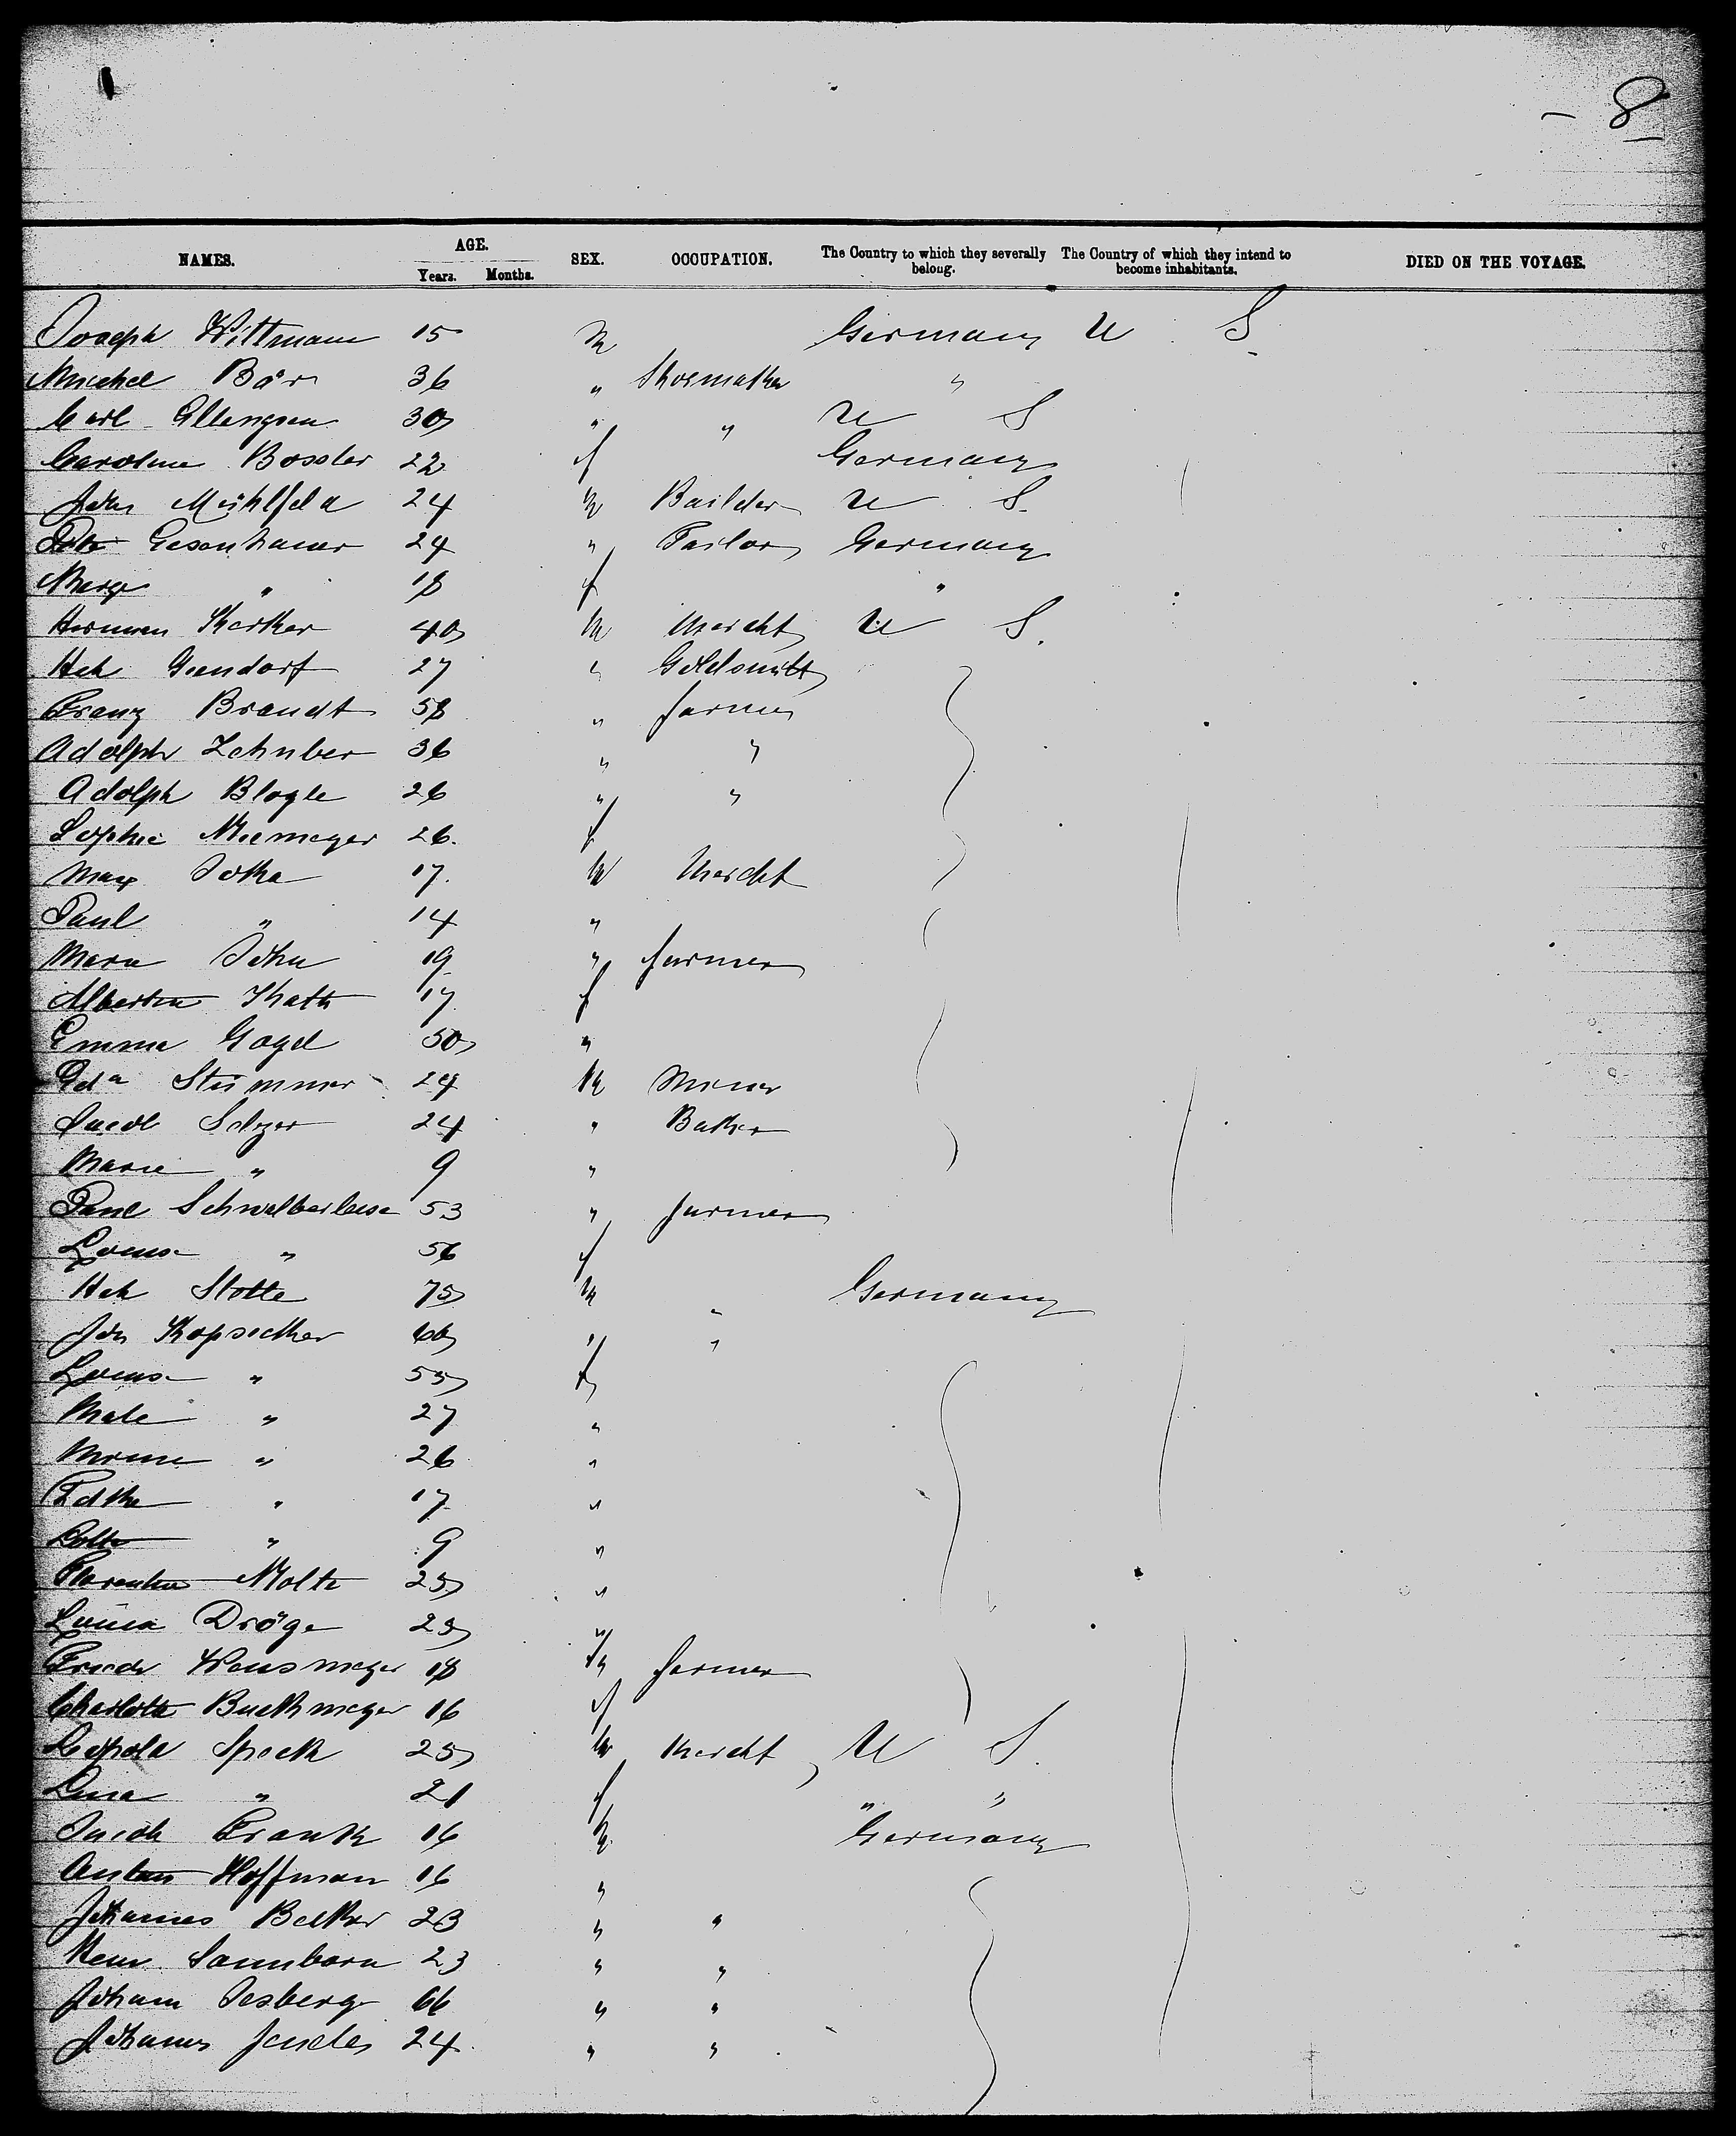 - 8 -
NAMES. AGE. Years. Months. SEX. OCCUPATION. The Country to which they severally belong. The Country of which they intend to become inhabitants. DIED ON THE VOYAGE.
Joseph Wittmann 15 M Germany U S
Michel Bär 36 " Shoemaker "
Carl Ellengsen 30 " " U S
Caroline Bossler 22 f Germany
John Mühlfeld 24 M Builder U S.
Gesenhauer 24 " Tailor Germany
Marge " 18 f "
Herman Kerker 40 M Mercht U S.
Hch 27 " Goldsmitt
Franz Brandt 58 " farmer
Adolph 36 " "
Adolph Blogle 26 " "
Sophie Niemeyer 26. f
Max Jotka 17. M Mercht
Paul " 14 "
John 19 " farmer
Albertine Kath 17 f
Emma Gogel 50 "
Stümmer 24 M Miner
Selzer 24 " Baker
Marie " 9 "
Paul 53 " farmer
Louise " 56 f
Hch Stolte 75 M " Germany
Joh 60 " "
Louise " 55 f
Male " 27 "
Minna " 26 "
" 17 "
" 9 "
Nolte 25 "
Louisa Dröge 25 "
Friedr 18 M farmer
Charlotte Buckmeyer 16 f
Lepold Speck 25 M Mercht U S.
Lina " 21 f " "
Jacob Frank 16 M Germany
Anton Hoffman 16 "
Johannes Becker 23 " "
Sannborn 23 " "
Johann Jesberg 66 " "
Johannes 24 " "